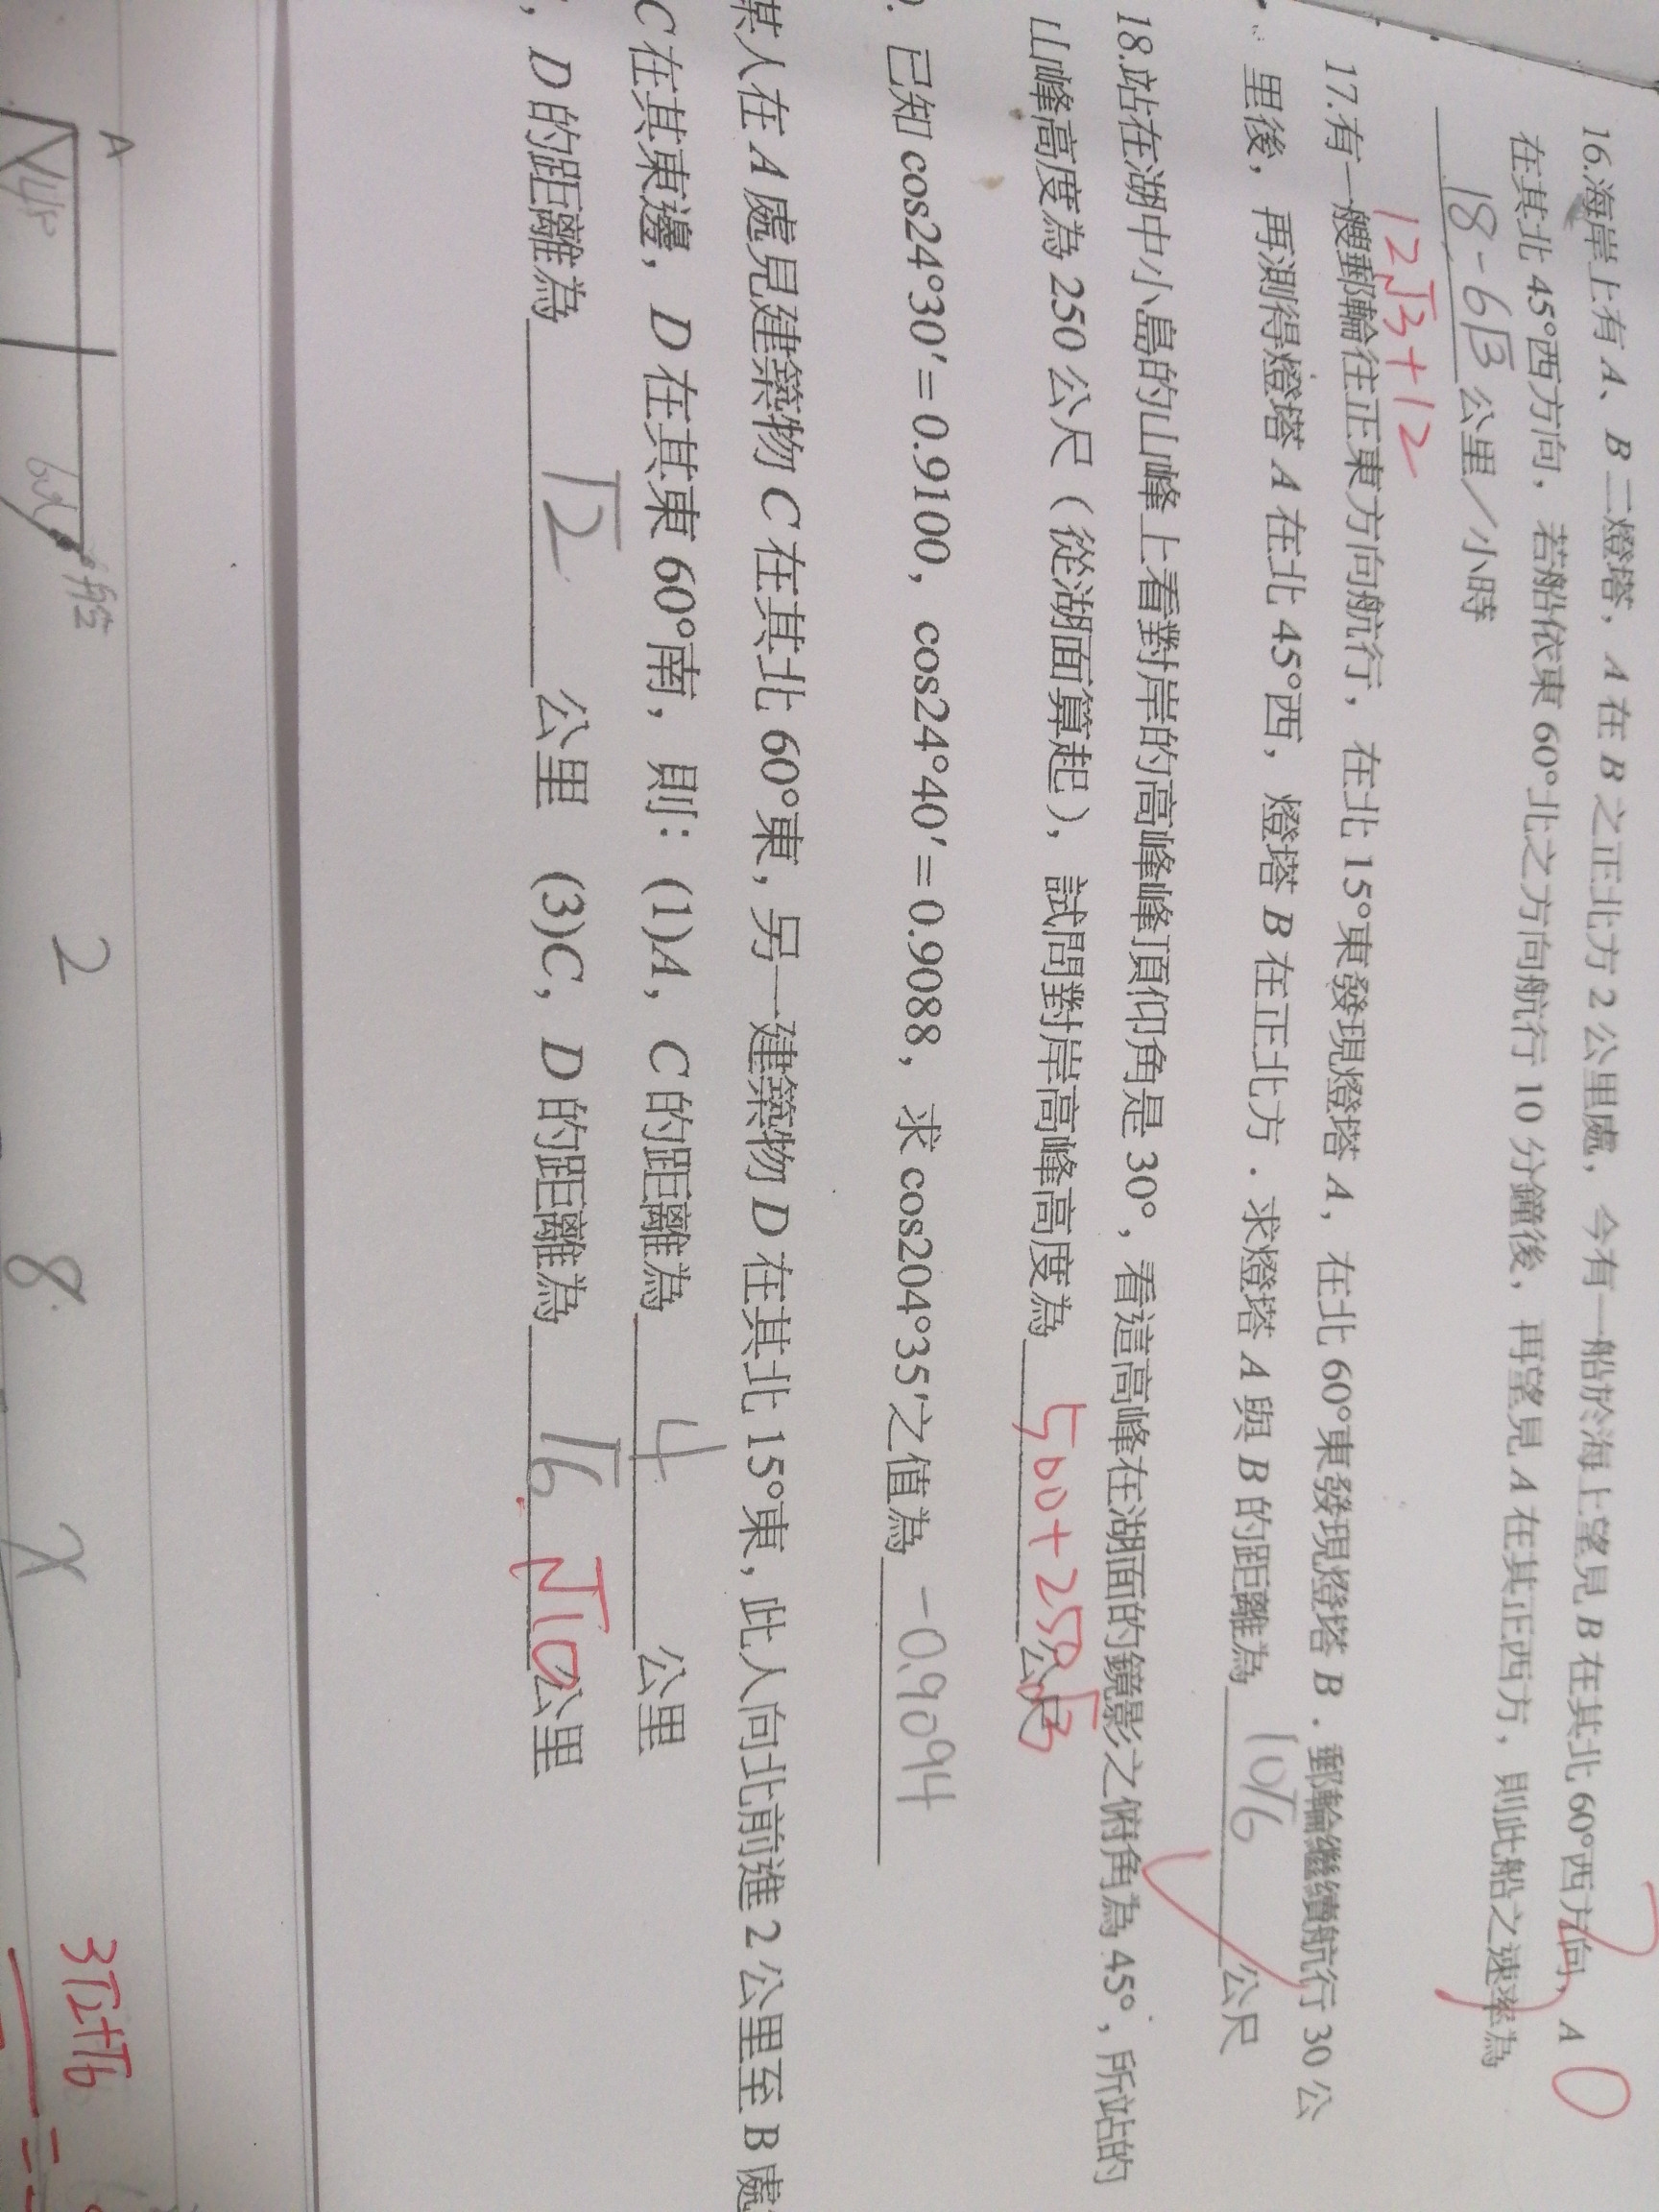 16.海岸上有 A、B 二燈塔，A 在 B 之正北方 2 公里處，今有一船於海上望見 B 在其北 60°西方向，A
在其北 45°西方向，若船依東 60°北之方向航行 10 分鐘後，再望見 A 在其正西方，則此船之速率為
18-6√3 公里／小時
12√3+12
17.有一艘郵輪往正東方向航行，在北 15°東發現燈塔 A，在北 60°東發現燈塔 B．郵輪繼續航行 30 公
里後，再測得燈塔 A 在北 45°西，燈塔 B 在正北方．求燈塔 A 與 B 的距離為 10√6 公尺
18.站在湖中小島的山峰上看對岸的高峰峰頂仰角是 30°，看這高峰在湖面的鏡影之俯角為 45°，所站的
山峰高度為 250 公尺（從湖面算起），試問對岸高峰高度為 500+250√3 公尺
已知 cos24°30′=0.9100，cos24°40′=0.9088，求 cos204°35′之值為 -0.9094
某人在 A 處見建築物 C 在其北 60°東，另一建築物 D 在其北 15°東，此人向北前進 2 公里至 B 處
C 在其東邊，D 在其東 60°南，則：(1)A，C 的距離為 4 公里
，D 的距離為 √2 公里 (3)C，D 的距離為 √6 √10 公里
A
船
2
8
x
3√2+√6
=